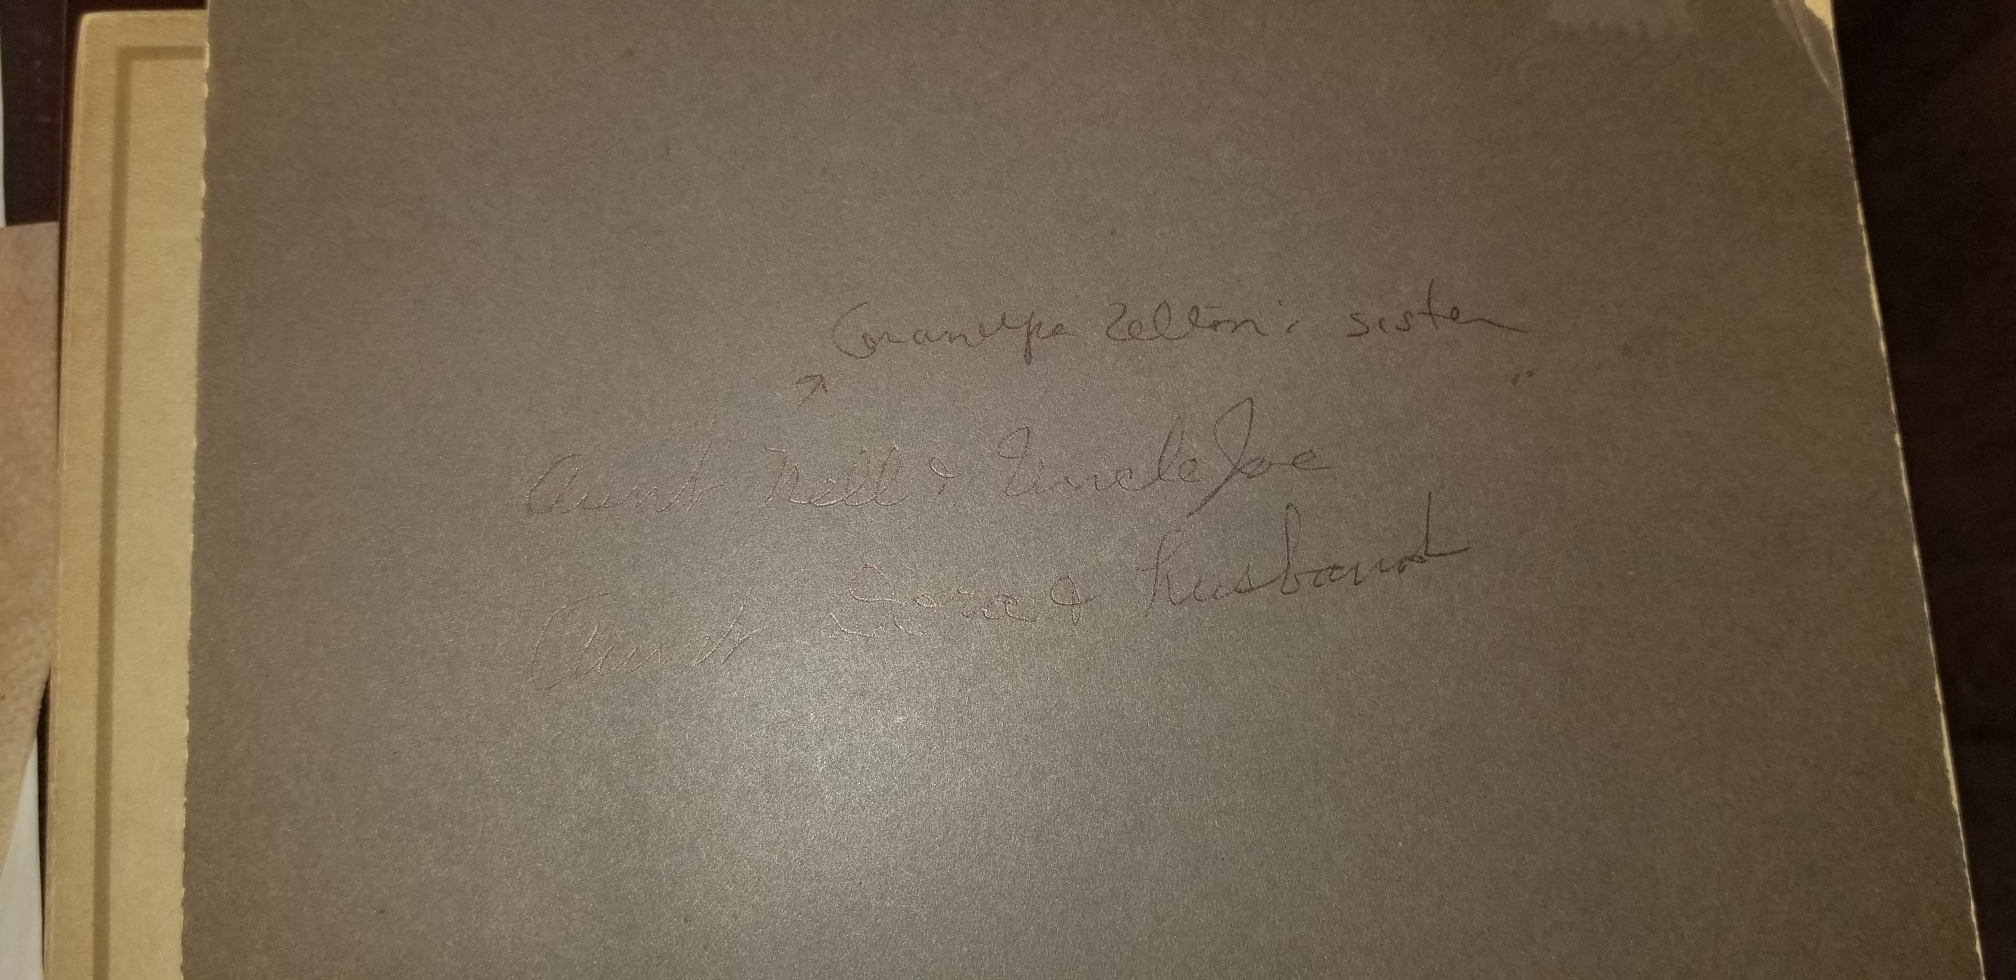 Grandpa Zelton's sister
↗ "
Aunt Nell & Uncle Joe
Aunt Dora & husband